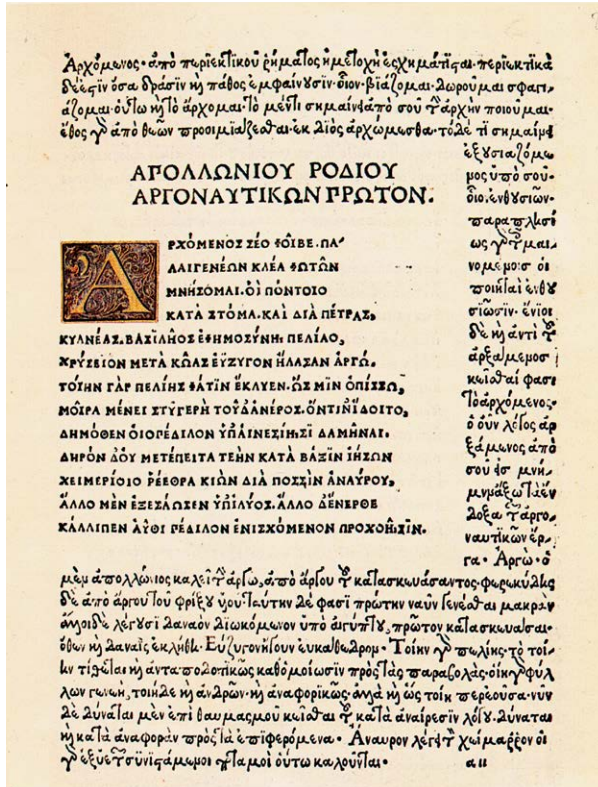 Ἀρχόμενος· ἀπὸ περιεκτικοῦ ῥήματος ἡ μετοχὴ ἐσχημάτισαι· περιεκτικὰ
δέ ἐσϊν ὅσα δράσϊν ϗ πάθος ἐμφαίνουσϊν· οἷον· βιάζομαι· δωροῦμαι σφαγι
άζομαι· οὕτω ϗ τὸ ἄρχομαι· τὸ μέν τι σημαίνει ἀπὸ σοῦ τ̀ ἀρχὴν ποιοῦμαι·
ἔθος γὸ ἀπὸ θεῶν προοιμιάζεσθαι· ἐκ Διὸς ἀρχώμεσθα· τὸ δέ τι σημαίνει
ΑΠΟΛΛΩΝΙΟΥ ΡΟΔΙΟΥ
ΑΡΓΟΝΑΥΤΙΚΩΝ ΠΡΩΤΟΝ.
ΑΡΧΌΜΕΝΟΣ ΣΈΟ ΦΟΙ͂ΒΕ. ΠΑ-
ΛΑΙΓΕΝΈΩΝ ΚΛΈΑ ΦΩΤΩ͂Ν
ΜΝΉΣΟΜΑΙ. ΟἹ ΠΌΝΤΟΙΟ
ΚΑΤᾺ ΣΤΌΜΑ. ΚΑῚ ΔΙᾺ ΠΈΤΡΑΣ,
ΚΥΑΝΈΑΣ. ΒΑΣΙΛΗ͂ΟΣ ἘΦΗΜΟΣΎΝΗΙ ΠΕΛΊΑΟ,
ΧΡΎΣΕΙΟΝ ΜΕΤᾺ ΚΩ͂ΑΣ ἘΎΖΥΓΟΝ ἬΛΑΣΑΝ ἈΡΓΏ.
ΤΟΊΗΝ ΓᾺΡ ΠΕΛΊΗΣ ΦΆΤΙΝ ἜΚΛΥΕΝ. ὭΣ ΜΙΝ ὈΠΊΣΣΩ,
ΜΟΙ͂ΡΑ ΜΈΝΕΙ ΣΤΥΓΕΡΉ ΤΟΥ͂Δ' ἈΝΈΡΟΣ. ὍΝΤΙΝ' ἼΔΟΙΤΟ,
ΔΗΜΌΘΕΝ ΟἸΟΠΈΔΙΛΟΝ ὙΠ' ἘΝΝΕΣΊΗΙΣΙ ΔΑΜΗ͂ΝΑΙ.
ΔΗΡῸΝ Δ' ΟΥ̓ ΜΕΤΈΠΕΙΤΑ ΤΕῊΝ ΚΑΤᾺ ΒΆΞΙΝ ἸΉΣΩΝ
ΧΕΙΜΕΡΊΟΙΟ ῬΈΕΘΡΑ ΚΙῺΝ ΔΙᾺ ΠΟΣΣῚΝ ἈΝΑΎΡΟΥ,
ἌΛΛΟ ΜῈΝ ἘΞΕΣΆΩΣΕΝ ὙΠ' ἸΛΎΟΣ. ἌΛΛΟ Δ' ἜΝΕΡΘΕ
ΚΆΛΛΙΠΕΝ ΑΥ̓͂ΘΙ ΠΈΔΙΛΟΝ ἘΝΙΣΧΌΜΕΝΟΝ ΠΡΟΧΟΗ͂ΙΣΙΝ.
ἐξουσιαζόμε
μος ὑπὸ σοῦ·
οἷον. ἐνθουσιῶν·
παραπλησί
ως γὸ τ̀ μαι-
νομέμοις οἱ
ποιηταὶ ἐνθου
σιῶσϊν· ἔνιοι
δὲ ϗ ἀντὶ τ̀
ἀρξάμεμος
κεῖσθαί φασι
τὸ ἀρχόμενος·
ὁ οὖν λόγος ἀρ
ξάμενος ἀπὸ
σοῦ
δοξα τ̀ ἀργο-
ναυτικῶν ἔρ-
γα· Ἀργὼ· ὁ
μὲμ ἀπολλώνιος καλεῖ τ̀ ἀργὼ, ἀπὸ ἄργου τ̀ κατασκευάσαντος· φερεκύδης
δὲ ἀπὸ ἄργου τοῦ φρίξου ὑοῦ· ταύτην δέ φασι πρώτην ναῦν γενέσθαι μακράν
ἄλλοι δὲ λέγουσι Δαναὸν διωκόμενον ὑπὸ αἰγύπτου, πρῶτον κατασκευάσαι·
ὅθεν ϗ Δαναῒς ἐκλήθη· Εὔζυγον ἤγουν εὐκάθεδρομ· Τοίην γὸ πελίης· τὸ τοί-
ην τίθεται ϗ ἀνταποδοτικῶς καθ' ὁμοίωσϊν πρὸς τὰς παραβολάς· οἵη γὸ φύλ
λων γενεὴ, τοιήδε ϗ ἀνδρῶν· ϗ ἀναφορικῶς· ἀλλὰ ϗ ὡς τοίη πτερόουσα· νῦν
δὲ δύναται μὲν ἐπὶ θαυμασμοῦ κεῖσθαι τ̀ κατὰ ἀναίρεσϊν λόγου. δύναται
ϗ κατὰ ἀναφορὰν πρὸς τὰ ἐπιφερόμενα· Ἄναυρον λέγει τ̀ χείμαρρον οἱ
γὸ ἐξ ὑετῶ συνιστάμεμοι ποταμοὶ οὕτω καλοῦνται·
αιι